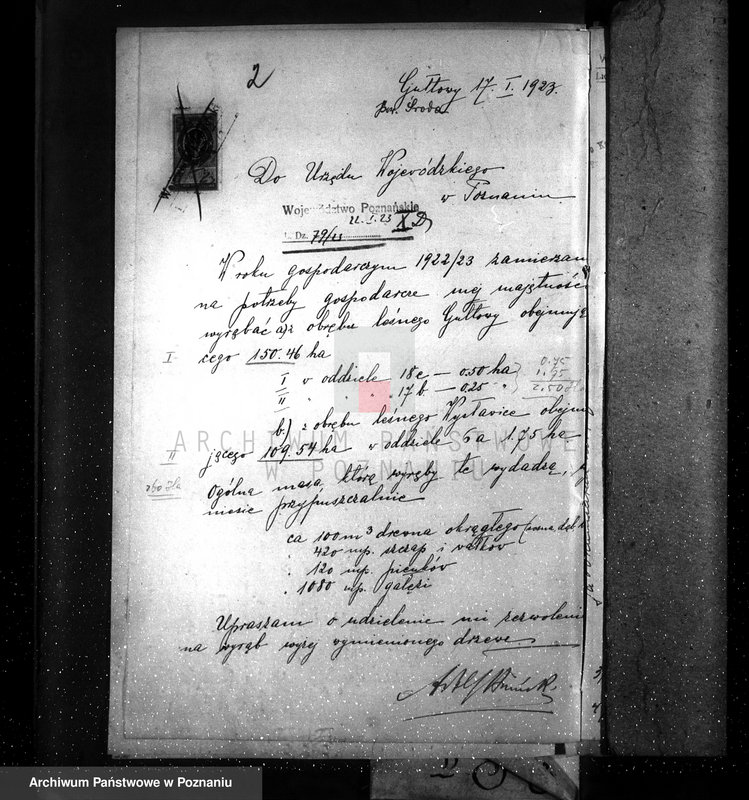 2
Gułtowy 17. I. 1923.
Pow. Środa
Do Urzędu Wojewódzkiego
w Poznaniu
Województwo Poznańskie
22. I. 23 X D
L. Dz. 79/23
W roku gospodarczym 1922/23 zamierzam
na potrzeby gospodarcze mej majętności
wyrąbać a) z obrębu leśnego Gułtowy obejmują
I cego 150.46 ha
I w oddziele 18 c — 0.50 ha
II " " 17 b — 0.25 "
0.75
1.75
2.50
b) z obrębu leśnego Wysławice obejmu
II jącego 109.54 ha w oddziele 5 a 1.75 ha
Ogólna masa, którą wyręby te wydadzą,
niesie przypuszczalnie
ca 100 m3 drewna okrągłego (sosna, dąb
" 420 mp. szczap i wałków
" 120 mp. pieńków
" 1080 mp. gałęzi
Upraszam o udzielenie mi zezwoleni
na wyrąb wyżej wymienionego drzewa
Adolf Bniński
ARCHIWUM PAŃSTWOWE
W POZNANIU
Archiwum Państwowe w Poznaniu